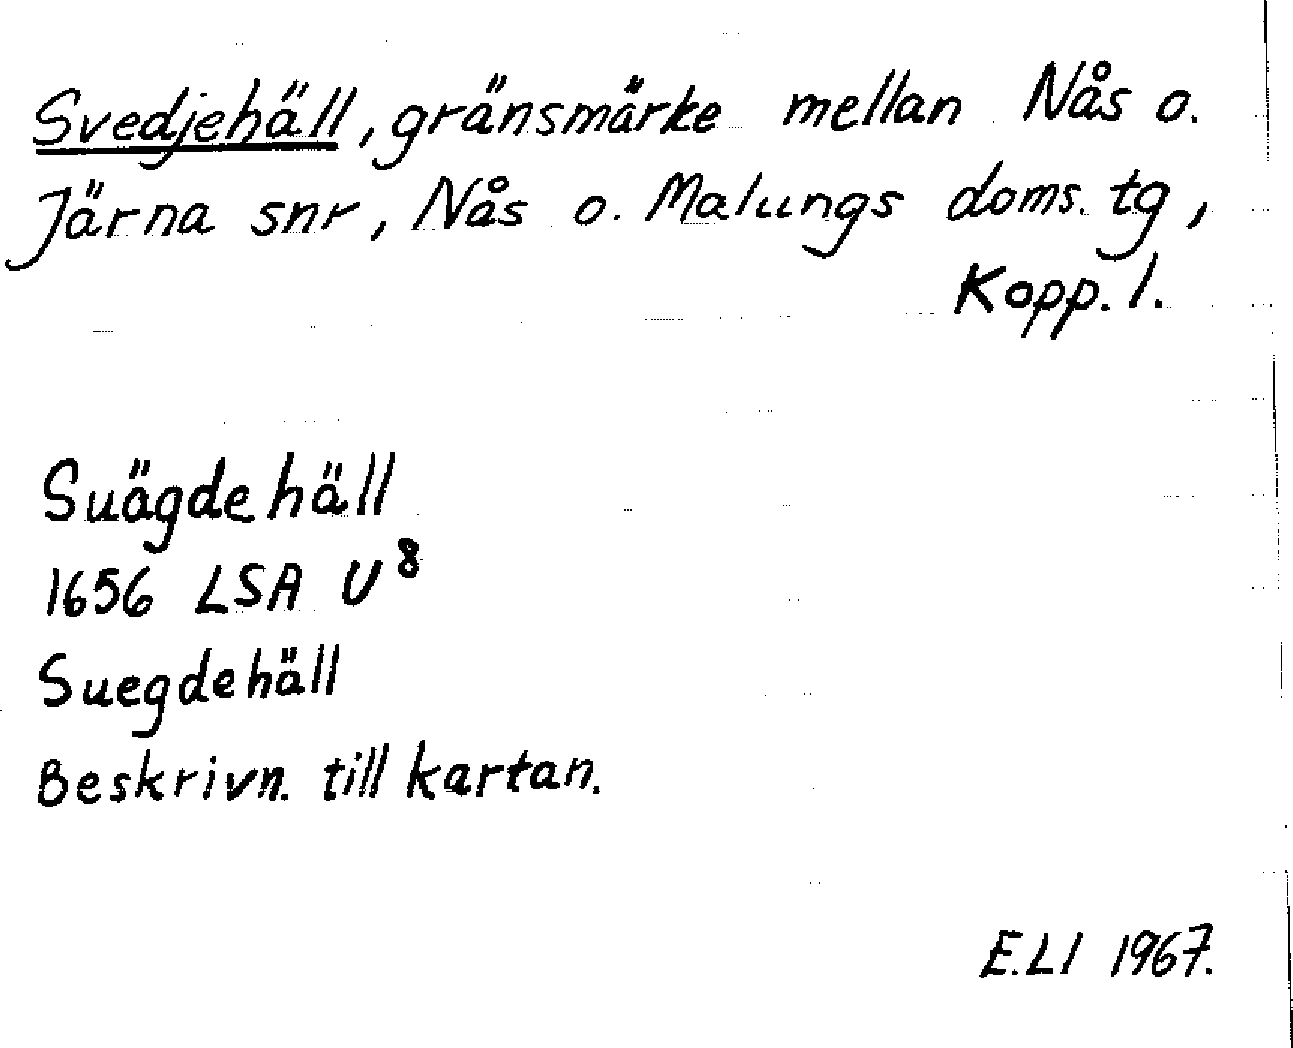 Svedjehäll, gränsmärke mellan Nås o.
Järna snr, Nås o. Malungs doms. tg,
Kopp. l.
Suägdehäll
1656 LSA U⁸
Suegdehäll
Beskrivn. till kartan.
E.LI 1967.